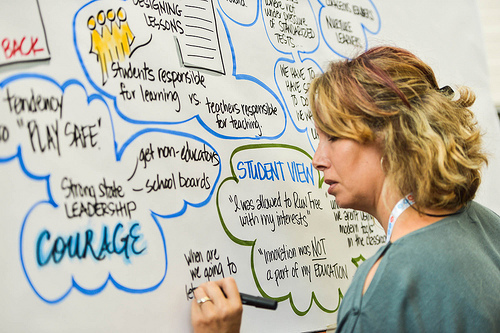 BACK
DESIGNING
LESSONS
Students responsible
for learning vs. teachers responsible
for teaching.
where not
under pressure
of STANDARDIZED
TESTS
NURTURE
LEADERS
WE HAVE TO
HAVE
TO D
WE
tendency
"PLAY SAFE."
get non-educators
Strong state – school boards
LEADERSHIP
COURAGE
STUDENT VIEW
"I was allowed to Run Free
with my interests"
"Innovation was NOT
a part of my EDUCATION
modern
in the
when are
we going to
let